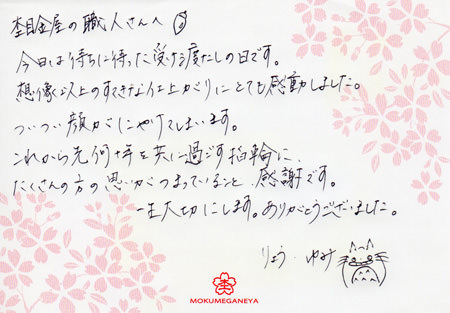 杢目金屋の職人さんへ
今日は待ちに待った受け渡しの日です。
想像以上のすてきな仕上がりにとても感動しました。
ついつい顔がにやけてしまいます。
これから先何十年と共に過ごす指輪に、
たくさんの方の思いがつまっていること、感謝です。
一生大切にします。ありがとうございました。
りょう ゆみ
MOKUMEGANEYA